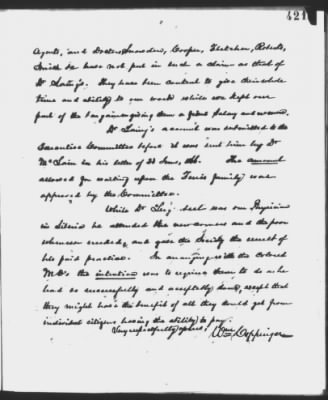 421
Agents, and Doctors Snowden, Cooper, Fletcher, Roberts,
Smith &c have not put in such a claim as that of
Dr Laing's. They have been content to give their whole
time and ability to our work while we kept our
part of the bargain giving them a fixed salary
Dr Laing's account was submitted to the
Executive Committee before it was sent him by Dr
McLain in his letter of 22 June, /66. The amount
allowed for waiting upon the family was
approved by the Committee.
While Dr was our Physician
in Liberia he attended the new comers and the poor
whenever needed, and gave the Society the of
his paid practice. In arranging with the Colored
M.D's. the intention was to require them to do as he
had so successfully and acceptably done, except that
they might have the benefit of all they could get from
individual citizens having the ability to pay.
Very respectfully yours, Wm Coppinger